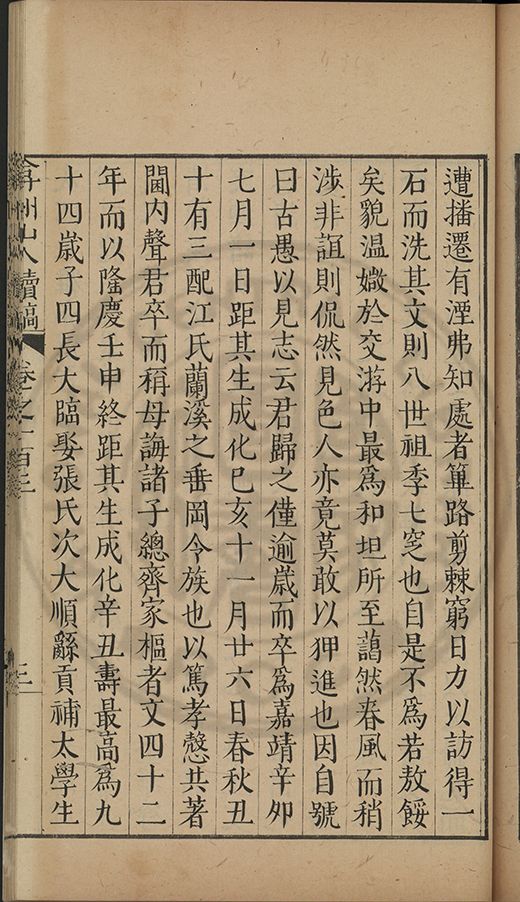 遭播遷有湮弗知處者篳路剪棘窮日力以訪得一
石而洗其文則八世祖季七窆也自是不爲若敖餒
矣貌溫媺於交游中最爲和坦所至藹然春風而稍
涉非誼則侃然見色人亦竟莫敢以狎進也因自號
曰古愚以見志云君歸之僅逾歲而卒爲嘉靖辛夘
七月一日距其生成化巳亥十一月廿六日春秋五
十有三配江氏蘭溪之垂岡令族也以篤孝慤共著
閫内聲君卒而稱母誨諸子總齊家樞者文四十二
年而以隆慶壬申終距其生成化辛丑壽最高爲九
十四歲子四長大臨娶張氏次大順繇貢補太學生
弇州山人續稿 卷之一百三